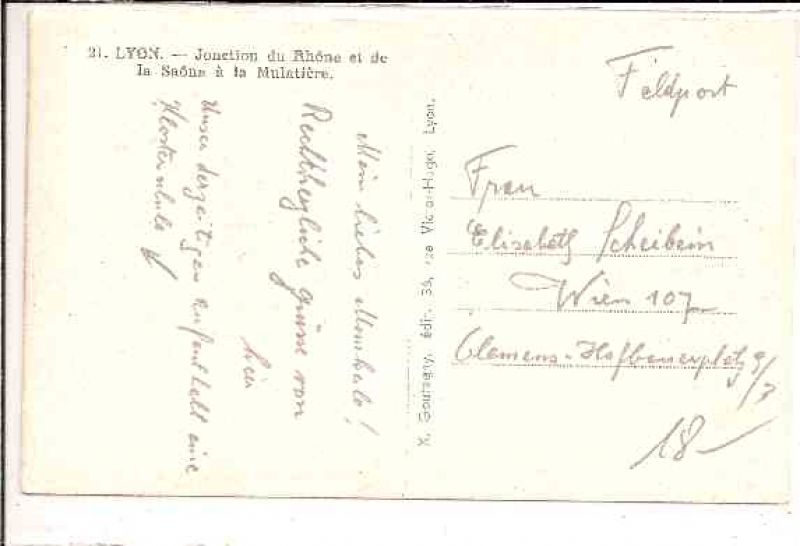 21. LYON. — Jonction du Rhône et de
la Saône à la Mulatière.
Mein liebes !
Rechtherzliche Grüsse von
hier
Unser derzeitiger aufenthalt eine
Klosterschule
X. Goutagny, édit. 33, rue Victor-Hugo, Lyon.
Feldpost
Frau
Elisabeth Scheibein
Wien 107
Clemens-Hofbauerplatz 9/3
18-